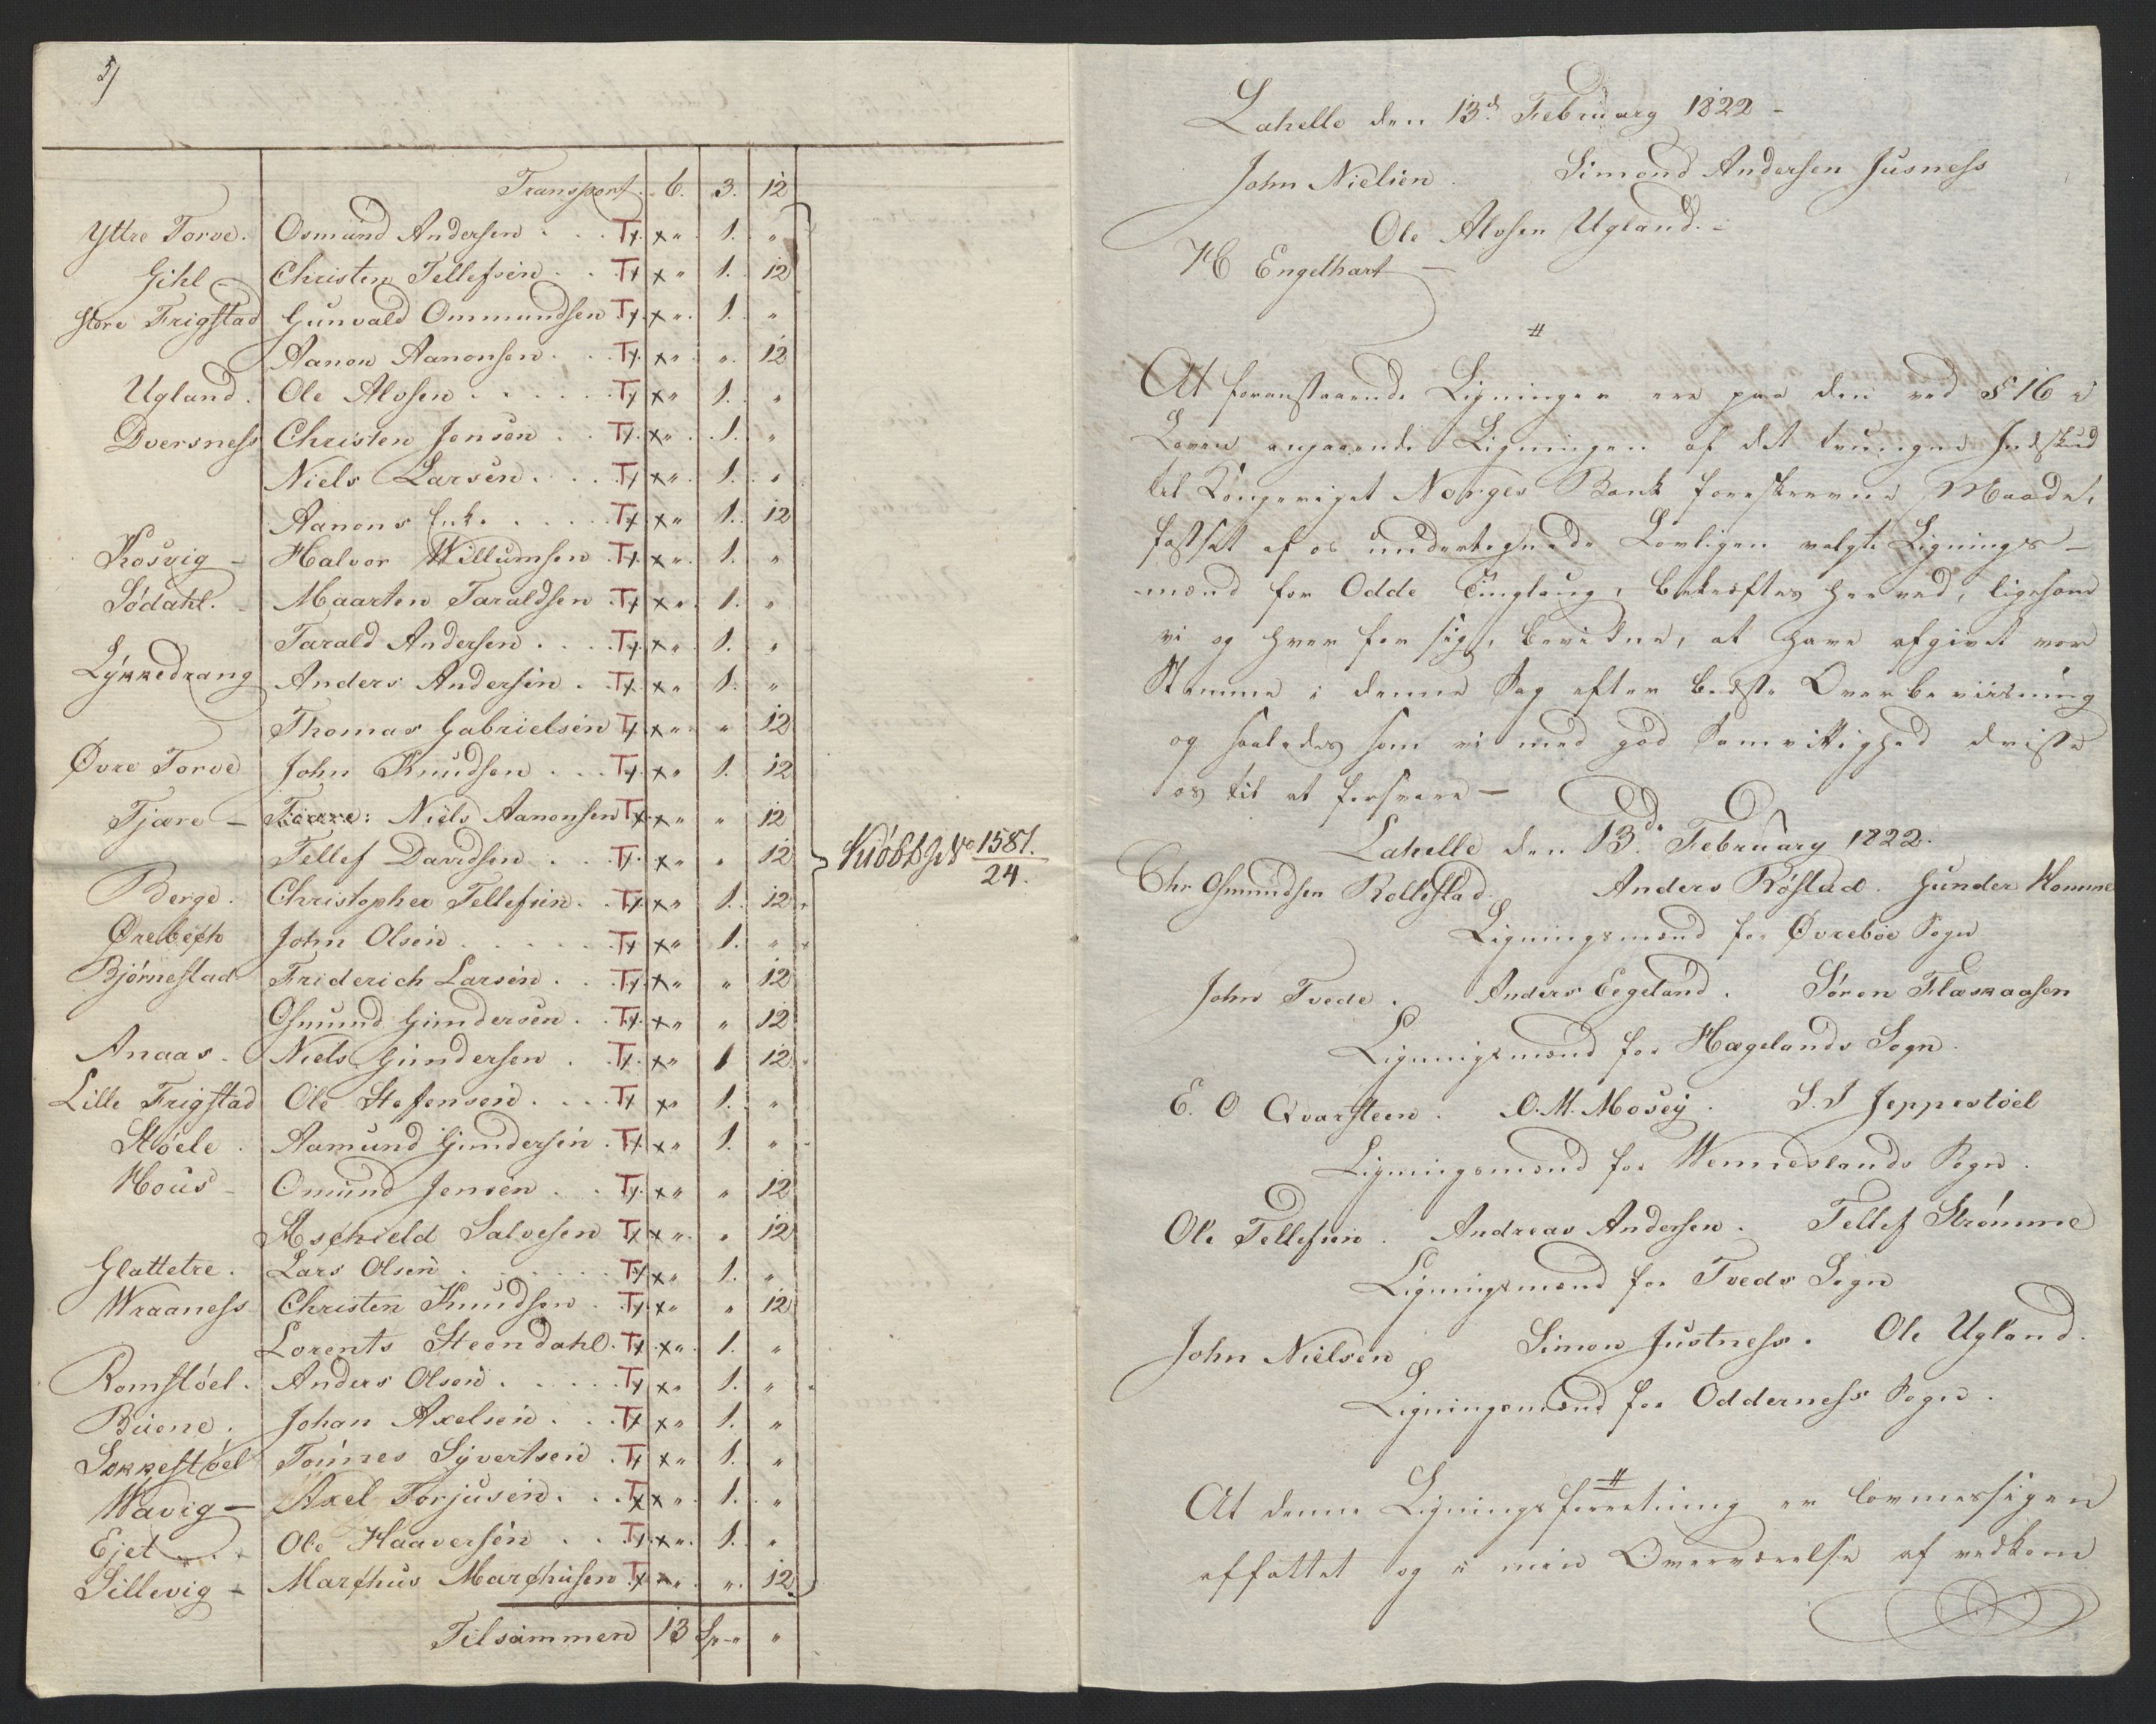 5/
Transport. 6. 3. 12
Yttre Torve. Osmund Andersen . . . Tx. x " 1. "
Gihl - Christen Tellefsen . . Tx x " 1. 12
Store Frigstad Gunvald Ommundsen Tx. x " 1. "
Aanon Aanonsen . . . Tx. x " " 12
Ugland. Ole Alvsen . . . . . Tx x " 1. "
Dversness Christen Jensen . . Tx. x " 1. "
Niels Larsen . . . . Tx x " 1. "
Aanons Enke . . . . . Tx. x " 1. 12
Kosvig - Halvor Willumsen . Tx. x " 1. "
Södahl. - Maarten Taraldsen . Tx x " 1. "
Tarald Andersen . . . . Tx. x " 1. "
Lykkedrang Anders Andersen . Tx. x " 1. "
Thomas Gabrielsen Tx x " " 12
Øvre Torve John Knudsen . . . Tx. x " 1. 12
Tjære - Tiære: Niels Aanonsen Tx. x " " 12
Tellef Davidsen . . . Tx. x " " 12
Kiöbb. P. No 1581.
24.
Berge. Christopher Tellefsen. . Tx. x " 1. 12
Ørebech John Olsen . . . . . . Tx x " 1. "
Bjørnestad Friderich Larsen . . . Tx. x " " 12
Osmund Gundersen . . Tx. x " " 12
Anaas. Niels Gundersen . . Tx. x " 1 12
Lille Frigstad Ole Stefensen . . . . Tx x " 1. "
Stöele . Aamund Gundersen . Tx. x " 1. "
Hous - Omund Jensen . . . Tx. x " " 12
Aschield Salvesen Tx x " " 12
Glattetre. Lars Olsen . . . . . . Tx x " 1. "
Wraaness Christen Knudsen . Tx. x " " 12
Lorents Steendahl. Tx. x " 1. "
Romstöel. Anders Olsen . . . . . Tx x " 1. "
Buene. Johan Axelsen . . . Tx x " 1. "
Sokkestöel Tönnes Syvertsen . Tx x " 1. "
Wavig - Axel Torjusen . . . Tx x " 1. "
Ejet . . . Ole Haaversen . . Tx. x " 1. "
Sillevig - Marchus Marchusen Tx " " 12
Tilsammen 13 Sp " "
Lahelle den 13d February 1822 -
John Nielsen. Simond Andersen Jusness
Ole Alvsen Ugland. -
H Engelhart -
#
At foranstaaende Ligninger ere paa den ved § 16 i
Loven angaaende Ligningen af det tvungne Indskud
til Kongeriget Norges Bank foreskrevne Maade,
fastsat af os undertegnede Lovligen valgte Lignings-
mænd for Odde Tinglaug, bekræftes herved, ligesom
vi og hver for sig, bevidne, at have afgivet vor
Stemme i denne Sag efter bedste Overbeviisning
og saaledes som vi med god Samvittighed driste
os til at forsvare -
Lahelle den 13d. February 1822.
Chr Osmundsen Rollestad. Anders Röstad. Gunder Homme
Ligningsmænd for Øvrebøe Sogn
John Tvede. Anders Eegeland. Sören Flaskaasen
Ligningsmænd for Hægelands Sogn.
E. O Qvarsteen. O. M. Mosey. S. J Jeppestöel
Ligningsmænd for Wenneslands Sogn.
Ole Tellefsen. Andreas Andersen. Tellef Strömme
Ligningsmænd for Tveds Sogn
John Nielsen Simon Justness. Ole Ugland.
Ligningsmænd for Odderness Sogn.
#
At denne Ligningsforretning er lovmessigen
affattet og i min Overværelse af vedkom